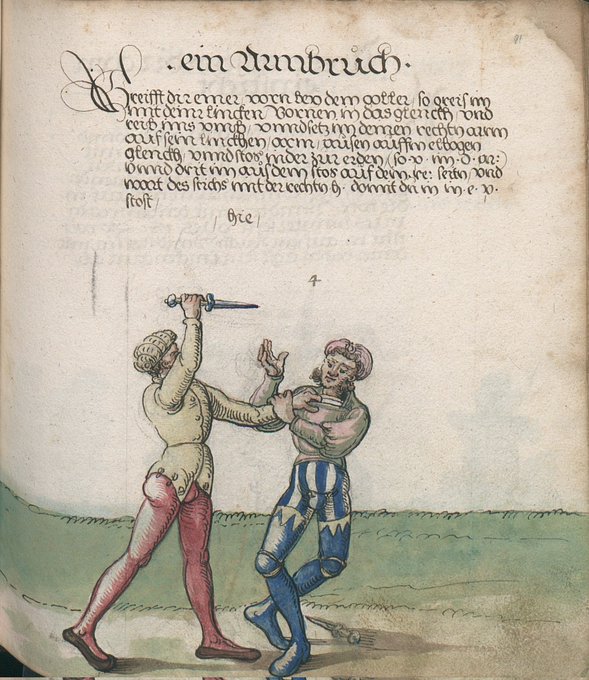 · ein Armbruch ·
Greifft dir einer vorn beÿ dem goller / so greif im
mit deiner lincken Vornen in das glenckh / vnd
reib ims vmb / vnnd setz im deinen rechten arm
auf sein linckhen / arm / aussen auff in elbogen
glenckh / vnnd stos in der zu erden / so v · im · d · ar :
vnnd drit im aus dem stos auf dein · re : seiten / vnd
wart des stichs mit der rechtn h · domit du in in · e · v ·
stost /
hie /
4
91